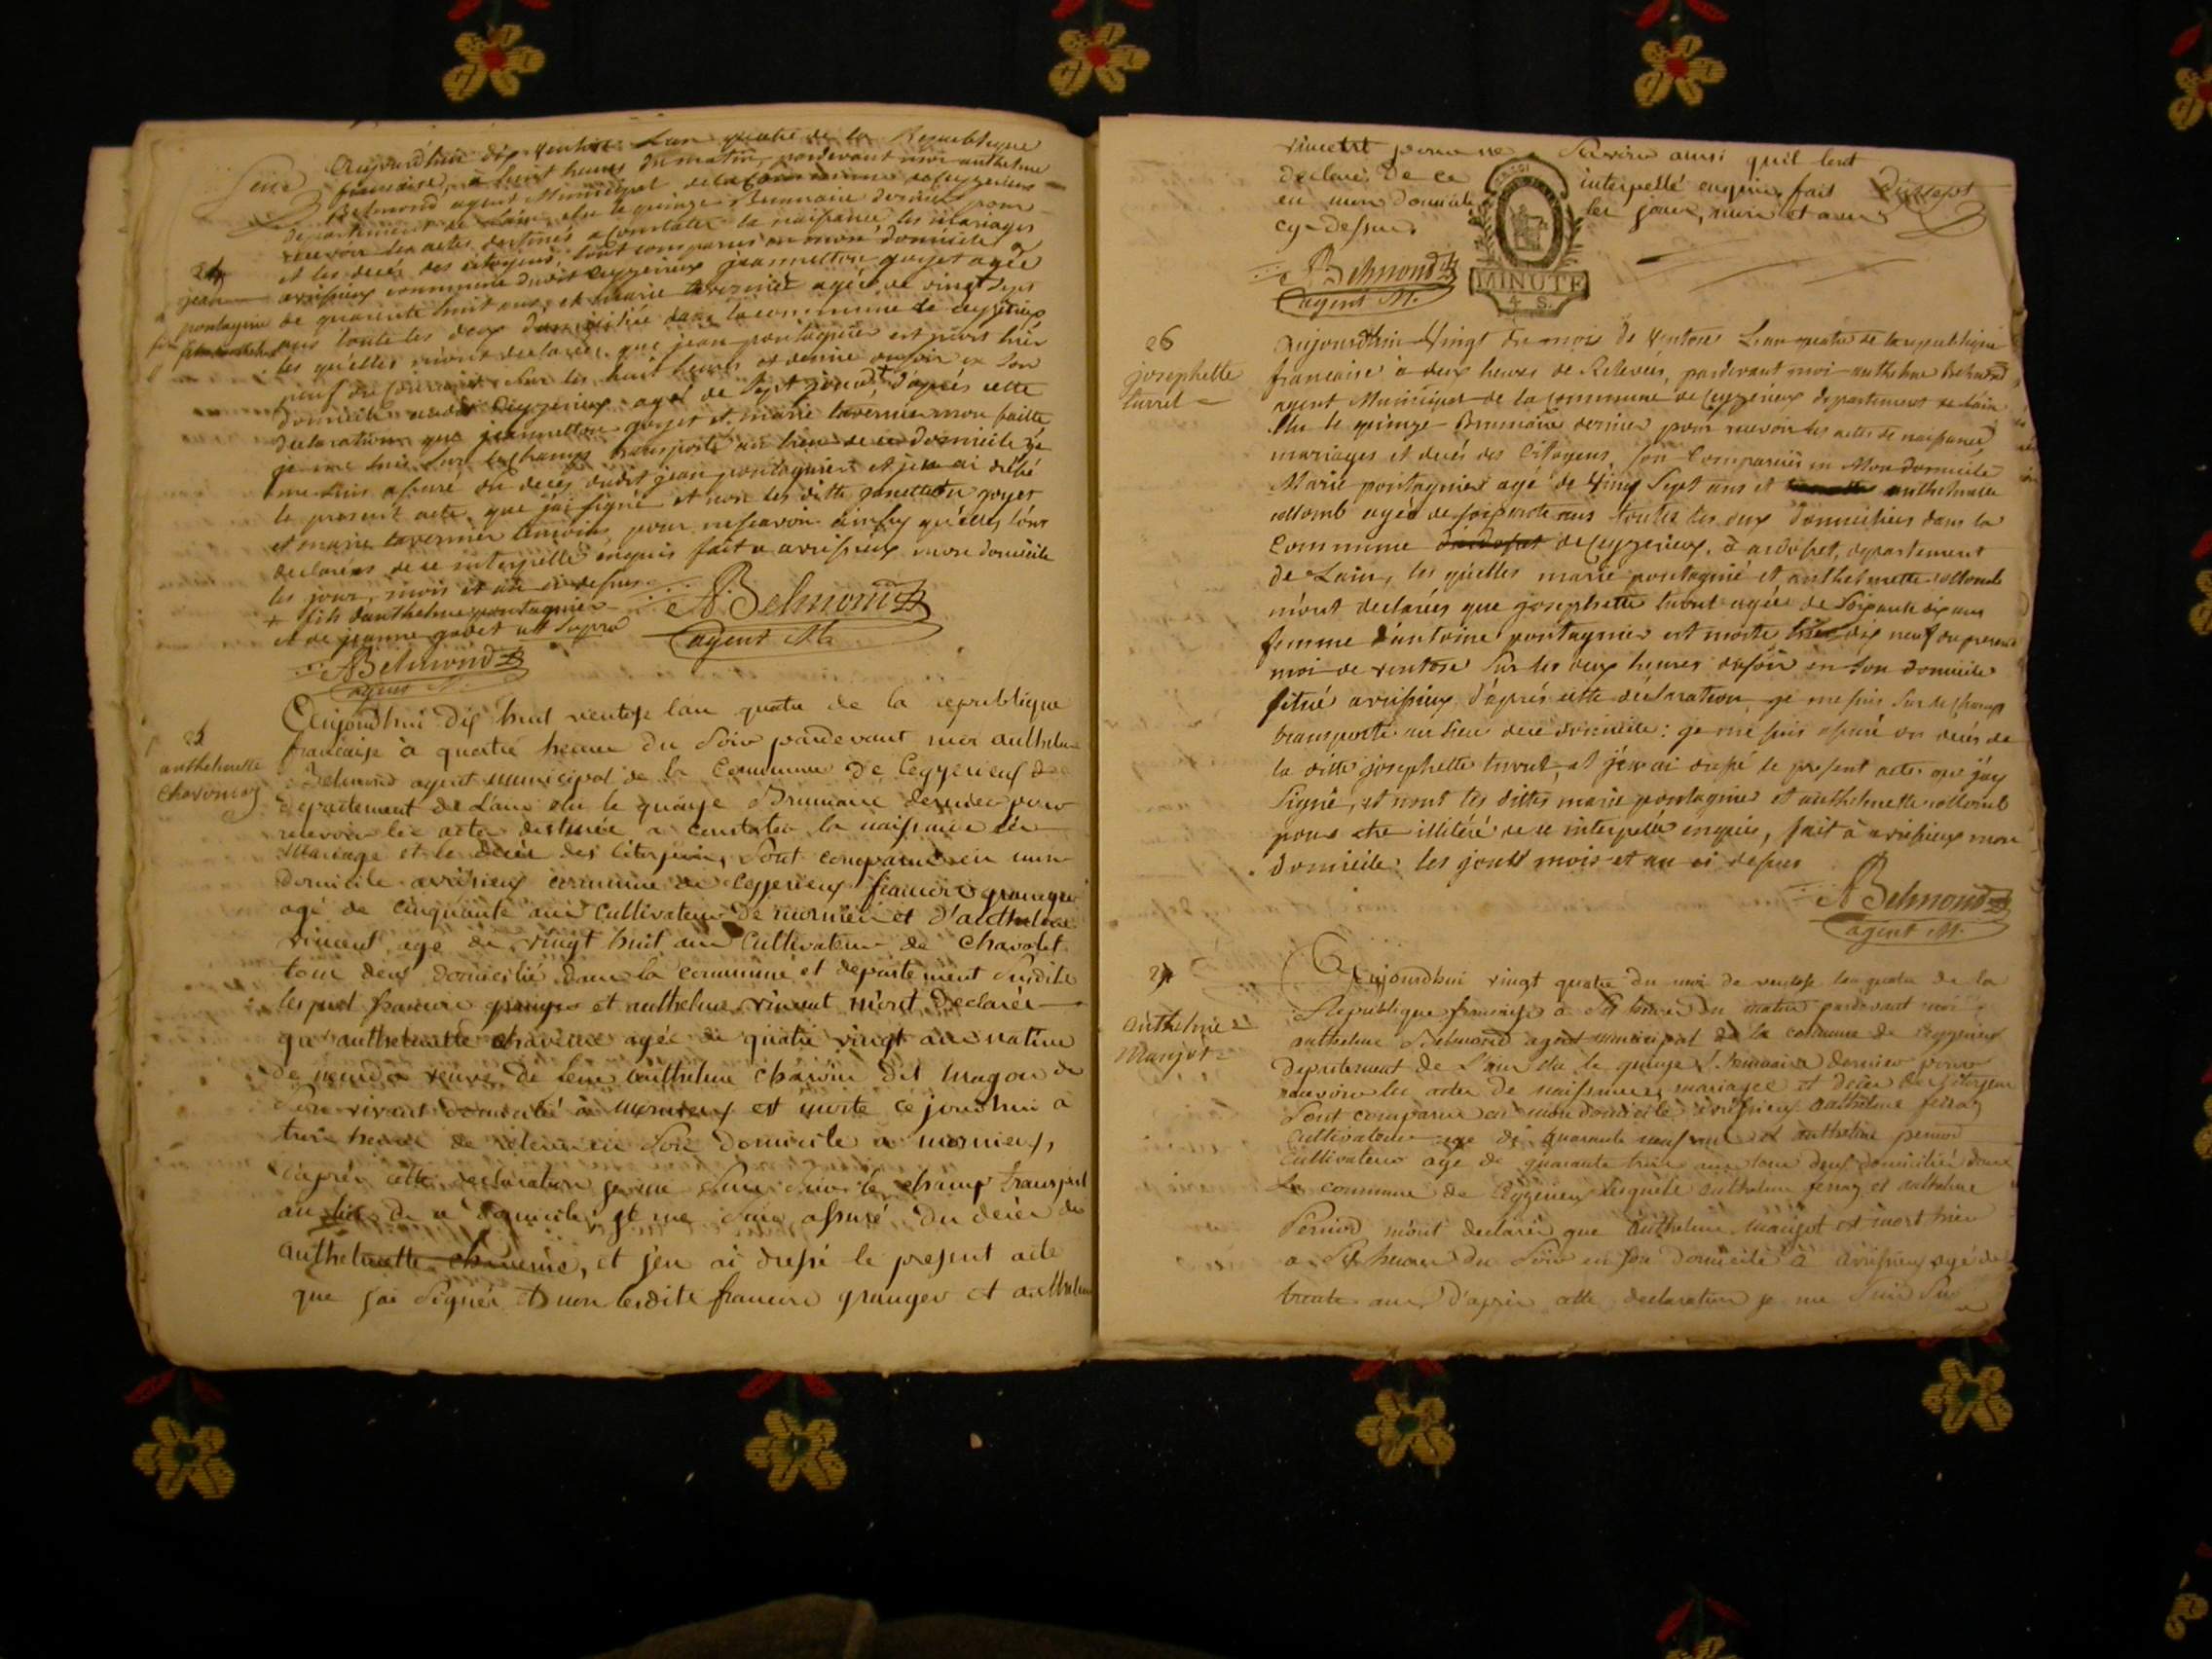 Seize
Aujourd'hui dix ventose L'an quatre de la Republique
francaise, à huit heures du matin, pardevant moi anthelme
Belmond agent Municipal de la Commune de Ceyzerieux
departement de Lain, elu le quinze Brumaire dernier pour
recevoir les actes destinés a Constater la naissance, les mariages
et les decés des citoyens, sont comparus en mon domicile
24
jean
pontagnier
avrissieux commune dudit Ceyzerieux jeannetton goyet agée
de quarente huit ans, et marie tavernier agée de vingt sept
ans toutes les deux domiciliée dans la commune de Ceyzerieux
les quelles m'ont declarées, que jean pontagnier est mort hier
neuf du Courant, sur les huit heures et demie du soir en son
domicile audit Ceyzerieux agé de sept jours + d'après cette
declaration que jeannetton goyet et marie tavernier mon faitte
je me suis sur le champs transporté au lieu de ce domicile je
me suis assuré du decés dudit jean pontagnier et j'en ai drêssé
le present acte, que j'ai signé et non les ditte janetton goyet
et marie tavernier temoins pour ne scavoir ainsy qu'elles l'ont
declarées de ce interpellé enquis fait a avrissieux mon domicile
les jour, mois et an ci dessus
+ fils d'anthelme pontagnier
et de jeanne godet ut supra
ABelmond
agent M.
ABelmond
agent M.
25
anthelmette
Chavonin
Aujourdhui dix huit ventose lan quatre de la republique
francaise à quatre heure du Soir pardevant moi anthelme
Belmond agent municipal de la Commune De Ceyzerieux
departement de Lain elu le quinze Brumaire dernier pour
recevoir les actes destinée a constater la naissance les
Mariage et le decés des Citoyens, Sont comparus en mon
domicile avrissieux commune de Ceyzerieux francois granger
agé de cinquante ans Cultivateur De mornieu et d'anthelme
vincent agé de vingt huit ans Cultivateur de Chavolet
tous deux domicilié dans la commune et departement susdite
lesquel francois granger et anthelme vincent m'ont Declarés
qu'anthelmette agée de quatre vingt ans native
veuve De feu anthelme
vivant domicilié à mornieux est morte ce jourdhui a
trois heures de relevé en Son Domicile a mornieux,
d'après cette declaration je me suis sur le champ transporté
au lieu de ce domicile, et me suis assuré Du decés de
anthelmette, et j'en ai dressé le present acte
que j'ai Signér et non lesdits francois granger et anthelme
vincent pour ne Savoir ainsi quil lont
declaré De ce interpellé enquis fait
en mon Domicile les jour, mois et an
cy-dessus
MINUTE
4 S.
ABelmond
agent M.
26
josephette
turret
Aujourd'hui Vingt du mois de Ventose L'an quatre de la republique
francaise à deux heures de Relevées, pardevant moi anthelme Belmond
agent Municipal de la Commune de Ceyzérieux departement de Lain
Elu le quinze Brumaire dernier pour recevoir les actes de naissance
mariages et decés des Citoyens, son Comparûes en Mon domicile
Marie pontagnier agé de Vingt Sept ans et anthelmette
collomb agée de soixante ans toutes les deux domiciliées dans la
Commune de Ceyzerieux, à ardosset, departement
de Lain, les quelles marie pontagnié et anthelmette collomb
m'ont declarées que josephette turret agée de Soixante dix ans
femme d'antoine pontagnier est morte hier dix neuf du present
moi de ventose sur les deux heures du soir en son domicile
situé avrissieux, d'après cette déclaration je me suis sur le champs
transporté au lieu de ce domicile: je me suis assuré du decés de
la ditte josephette turret, et j'en ai dressé le present acte que j'ay
Signé, et nont les dittes marie pontagnier et anthelmette collomb
pour etre illitéré de ce interpellé enquis, fait à avrissieux mon
domicile les jour mois et an ci dessus
ABelmond
agent M.
27
anthelme
Manjot
Aujourdhui vingt quatre du moi de ventose lan quatre de la
Republique francaise a Sept heures Du matin pardevant moi
anthelme Belmond agent municipal de la commune de Ceyzerieux
Departement de l'ain elu le quinze Brumaire dernier pour
recevoir les actes De naissances, mariages et decés des Citoyens
Sont comparus en mon domicile avrissieux anthelme
Cultivateur agé de quarante neuf ans et anthelme
Cultivateur agé de quarante trois ans tous deux domicilié dans
la commune de Ceyzerieux lesquels anthelme et anthelme
m'ont declarés que anthelme manjot est mort hier
a Six heures du Soir en son domicile à avrissieux agé de
trente ans, D'après cette declaration je me Suis Sur